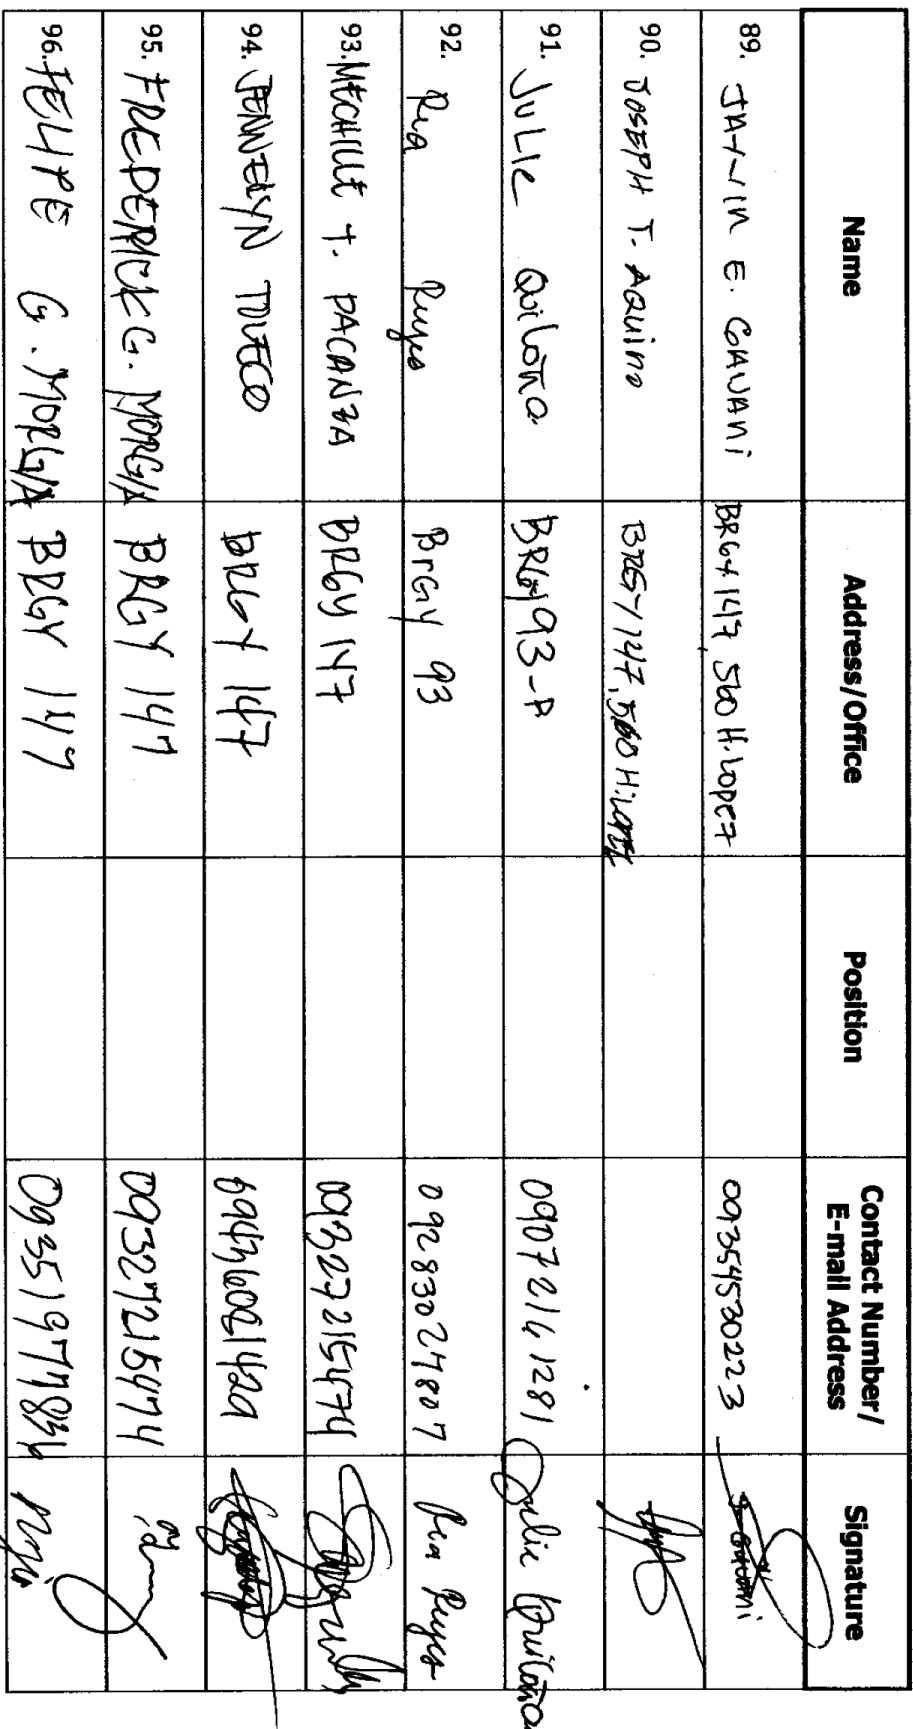 Name Address/Office Position Contact Number/ E-mail Address Signature
89. JAYVIN E. GAVANI BRGY 147, 560 H. Lopez 09354530223
90. JOSEPH T. AQUINO BRGY 147, 560 H. Lopez
91. JULIE Quiloña BRGY 93-A 09072161281 Julie Quiloña
92. Rea Reyes BrGy 93 09283024807 Rea Reyes
93. MECHILLE T. PACANZA BRGY 147 09327215474
94. JENNELYN TOLECO BRGY 147
95. FREDERICK G. MORGIA BRGY 147 09327215474
96. FELIPE G. MORGIA BRGY 147